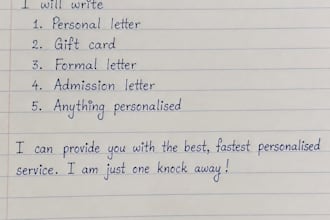 I will write
1. Personal letter
2. Gift card
3. Formal letter
4. Admission letter
5. Anything personalised
I can provide you with the best, fastest personalised
service. I am just one knock away!